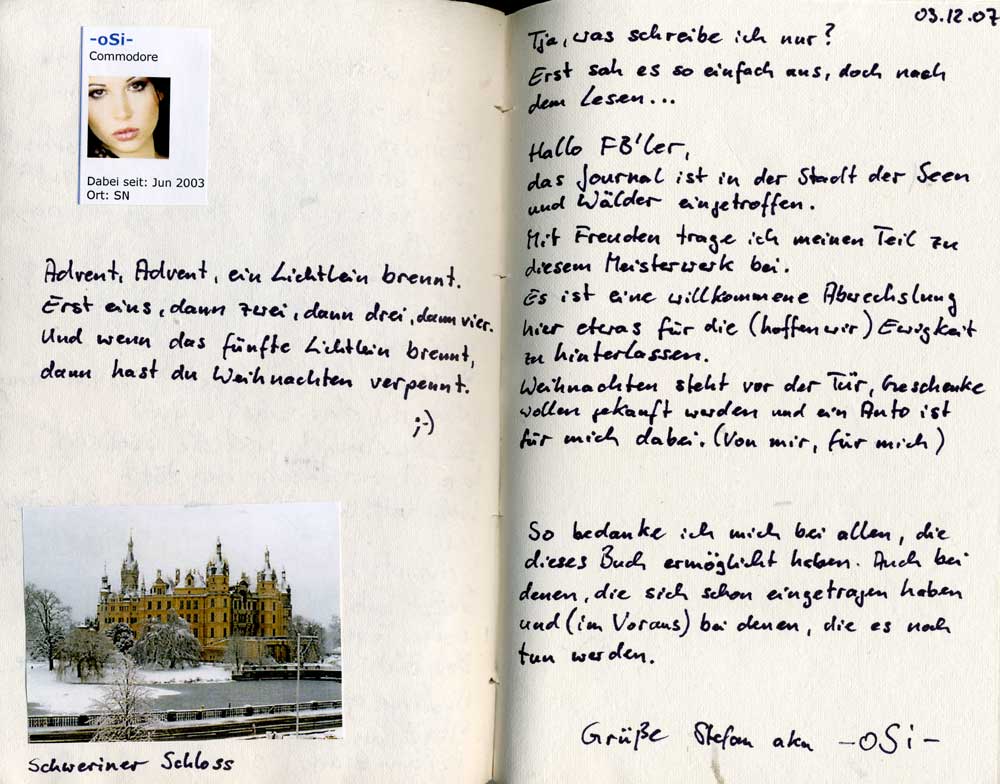 -oSi-
Commodore
Dabei seit: Jun 2003
Ort: SN
Advent, Advent, ein Lichtlein brennt.
Erst eins, dann zwei, dann drei, dann vier.
Und wenn das fünfte Lichtlein brennt,
dann hast du Weihnachten verpennt.
;-)
Schweriner Schloss
03.12.07
Tja, was schreibe ich nur?
Erst sah es so einfach aus, doch nach
dem Lesen...
Hallo FB'ler,
das Journal ist in der Stadt der Seen
und Wälder eingetroffen.
Mit Freuden trage ich meinen Teil zu
diesem Meisterwerk bei.
Es ist eine willkommene Abwechslung
hier etwas für die (hoffen wir) Ewigkeit
zu hinterlassen.
Weihnachten steht vor der Tür, Geschenke
wollen gekauft werden und ein Auto ist
für mich dabei. (Von mir, für mich)
So bedanke ich mich bei allen, die
dieses Buch ermöglicht haben. Auch bei
denen, die sich schon eingetragen haben
und (im Voraus) bei denen, die es noch
tun werden.
Grüße Stefan aka -oSi-